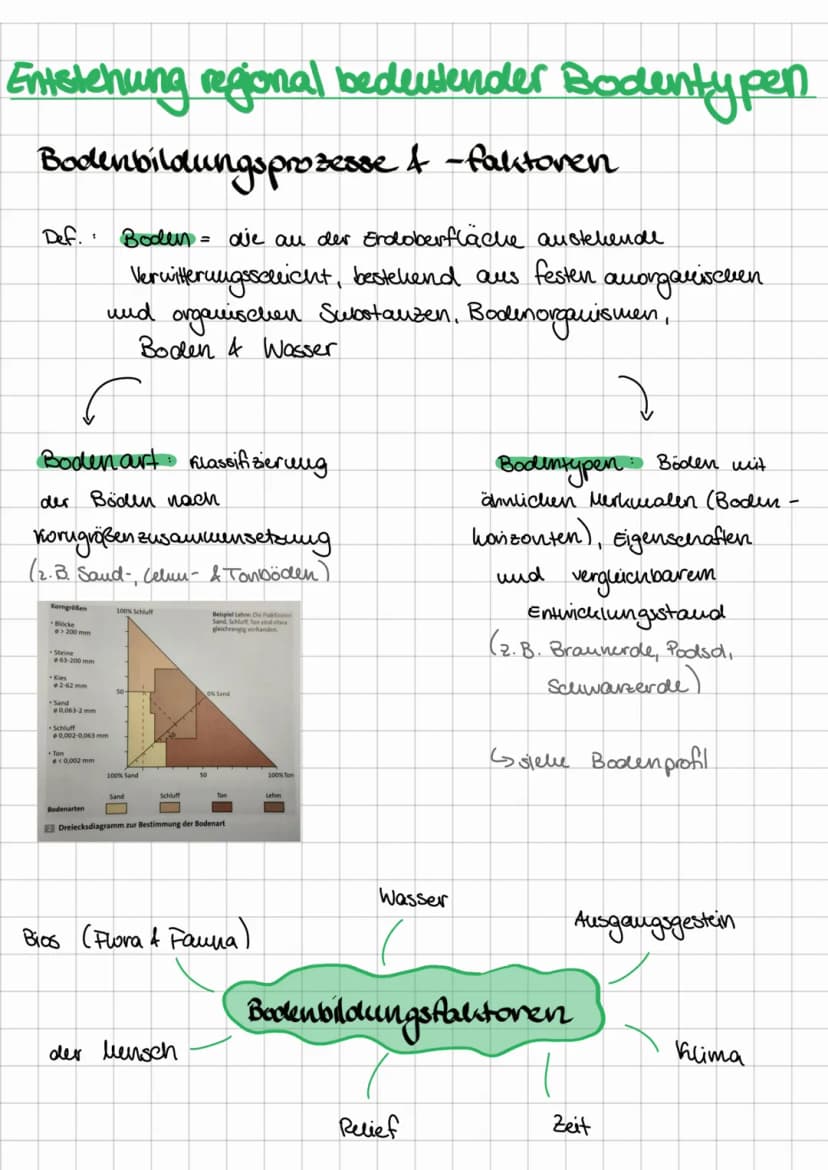 Entstehung regional bedeutender Bodentypen
Bodenbildungsprozesse & -faktoren
Def.: Boden = die an der Erdoberfläche anstehende
Verwitterungsschicht, bestehend aus festen anorganischen
und organischen Substanzen, Bodenorganismen,
Boden & Wasser
Bodenart: Klassifizierung
der Böden nach
Korngrößenzusammensetzung
(z.B. Sand-, Lehm- & Tonböden)
Korngrößen
• Blöcke
ø > 200 mm
• Steine
ø 63-200 mm
• Kies
ø 2-62 mm
• Sand
ø 0,063-2 mm
• Schluff
ø 0,002-0,063 mm
• Ton
ø < 0,002 mm
100% Schluff
Beispiel Lehm: Die Fraktionen
Sand, Schluff, Ton sind etwa
gleichrangig vorhanden.
50
0% Sand
50
100% Sand
50
100% Ton
Bodenarten
Sand
Schluff
Ton
Lehm
2 Dreiecksdiagramm zur Bestimmung der Bodenart
Bodentypen: Böden mit
ähnlichen Merkmalen (Boden-
horizonten), Eigenschaften
und vergleichbarem
Entwicklungsstand
(z.B. Braunerde, Podsol,
Schwarzerde)
↳ siehe Bodenprofil
Wasser
Bios (Flora & Fauna)
Ausgangsgestein
Bodenbildungsfaktoren
der Mensch
Klima
Relief
Zeit